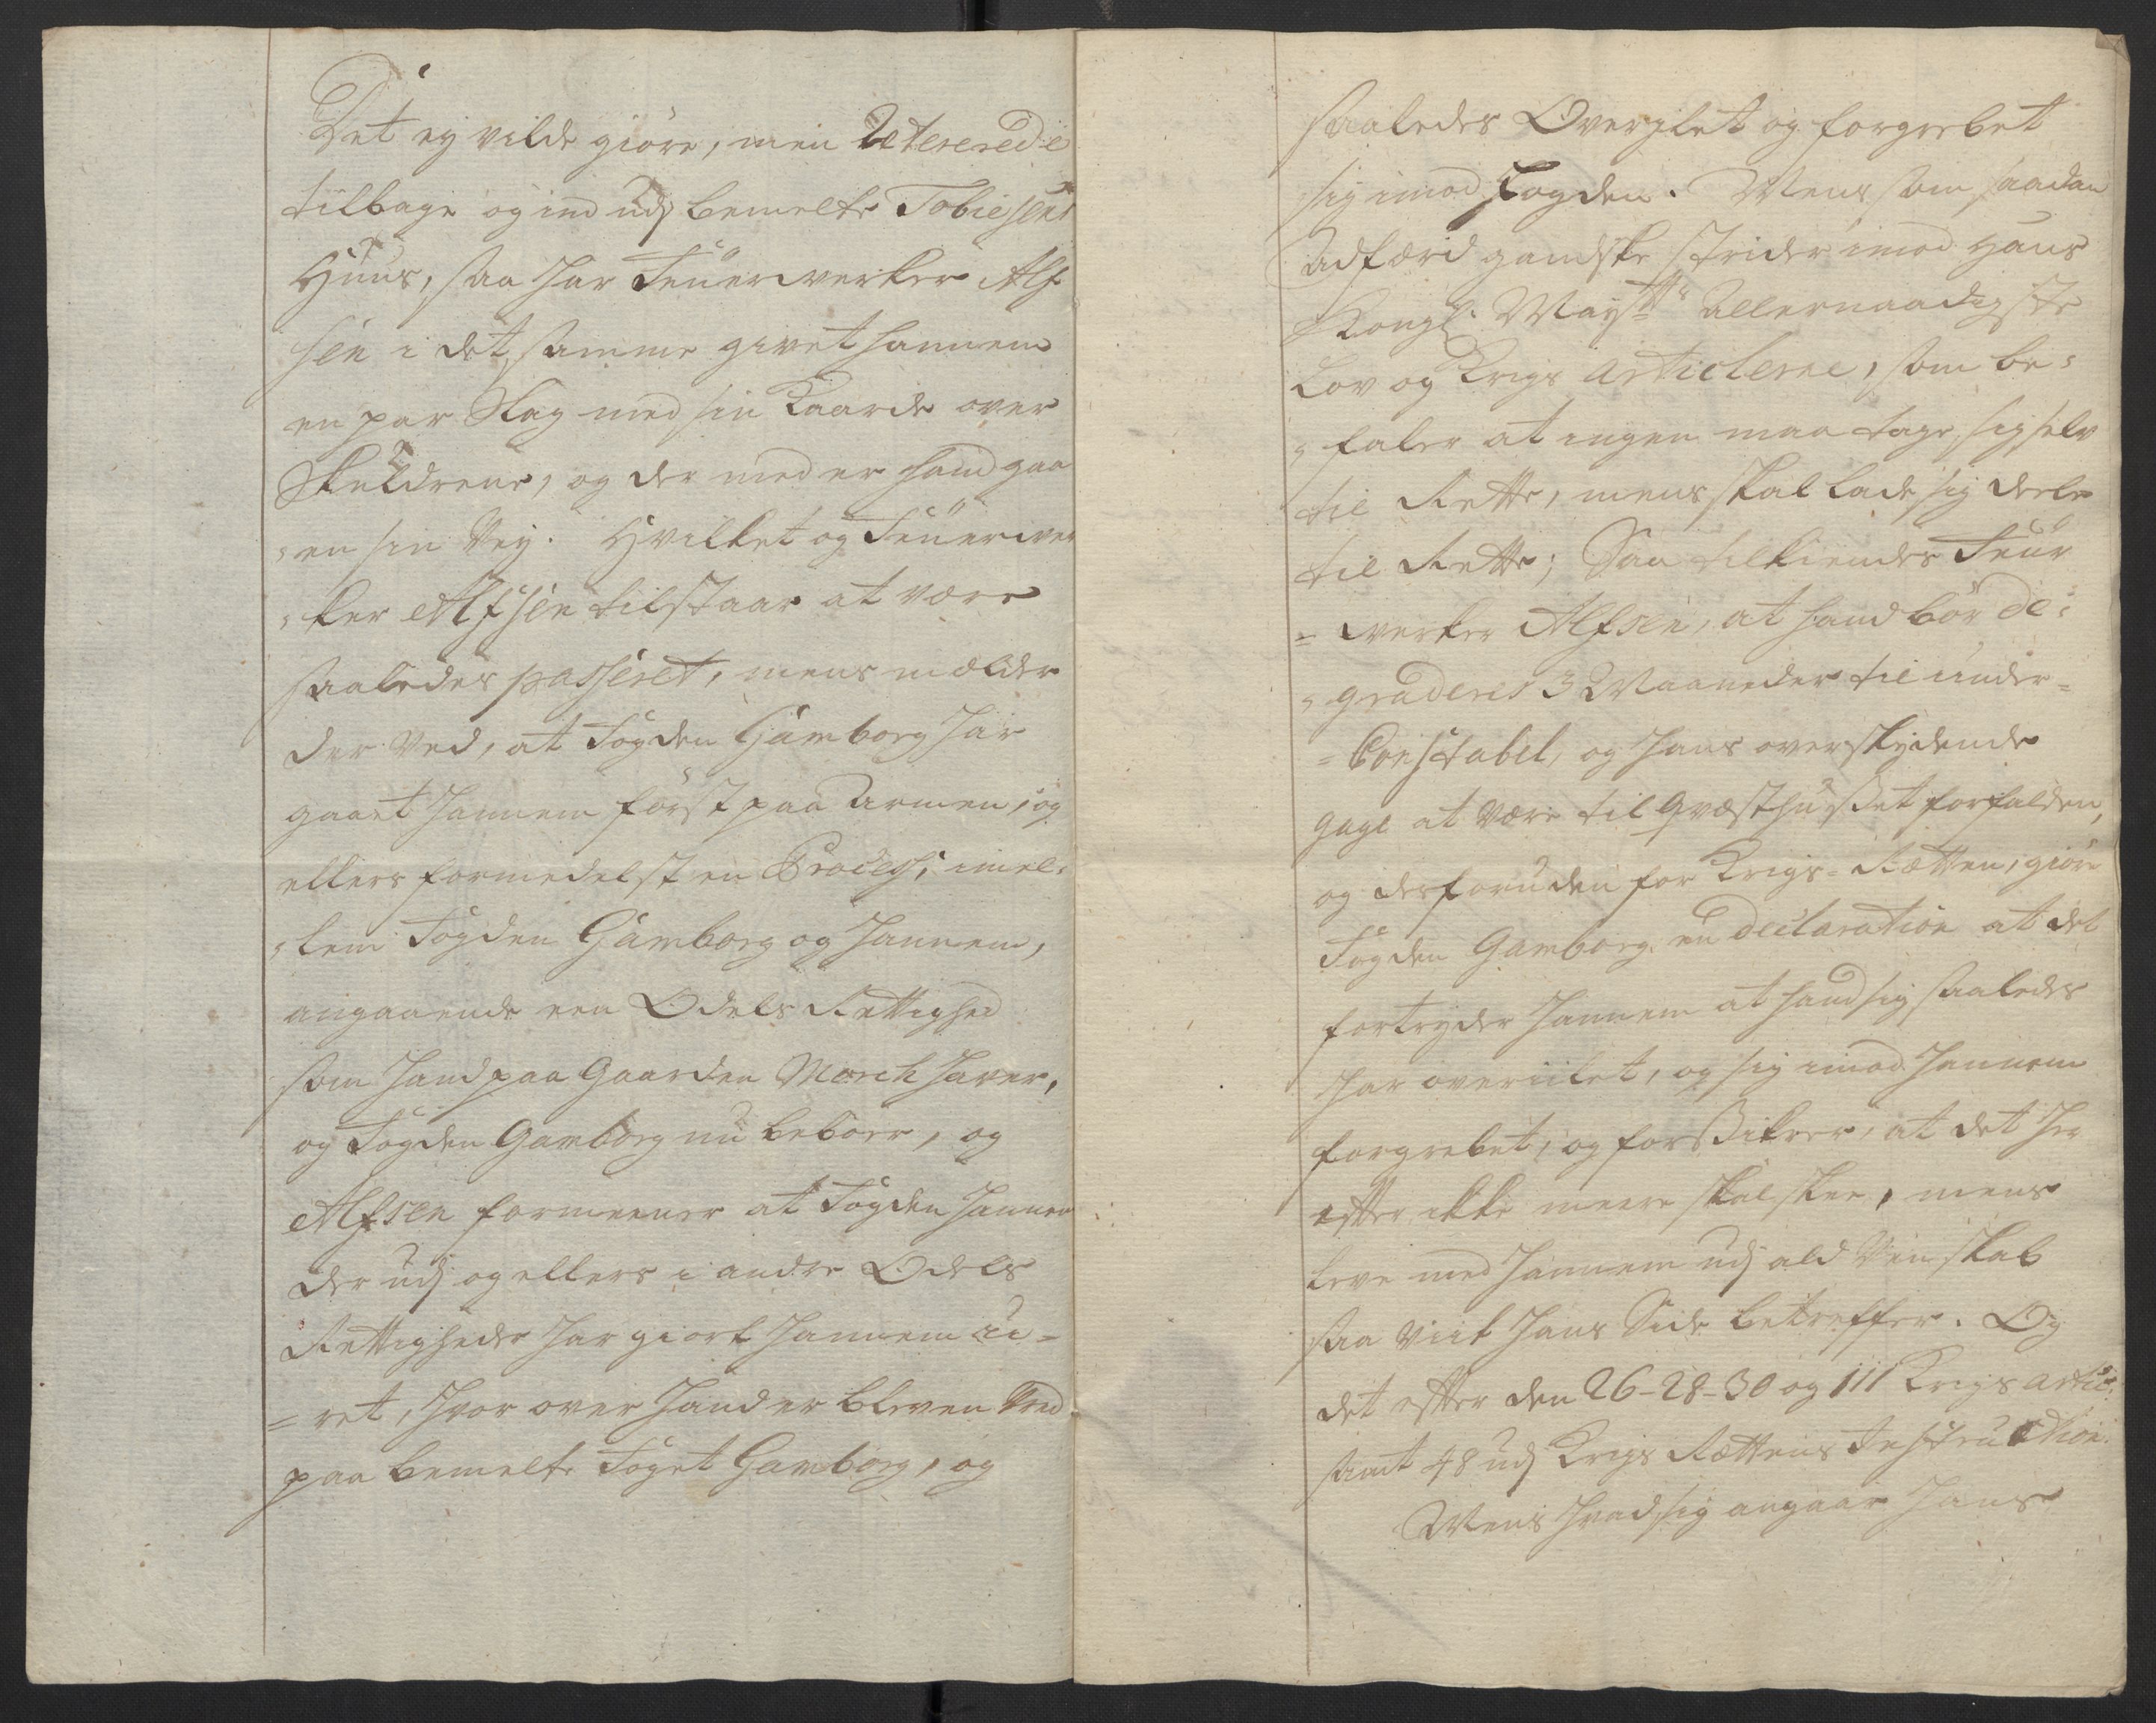 Det ey vilde giöre, men Retererede
tilbage og ind udj bemelte Tobiesens
Huus, saa har Feüerwerker Alf
sen i det samme givet hannem
en par Slag med sin Kaarde over
Skuldrene, og der med er hand gaa
,, en sin Vey. Hvilket og Feüerwer
,, ker Alfsen tilstaar at være
saaledes passeret, mens melder
der ved, at Fogden Gamborg har
gaaet hannem först paa Armen, og
ellers formedelst en Process, imel-
,, lem Fogden Gamborg og hannem,
angaaende een Odels Rettighed
som hand paa Gaarden Morch haver,
og Fogden Gamborg nu beboer, og
Alfsen formeener at Fogden hannem
der udj og ellers i andre Odels
Rettigheder har giort hannem u-
= ret, hvor over hand er bleven vred
paa bemelte Foget Gamborg, og
saaledes Overylet og forgrebet
sig imod Fogden. Mens som saadan
Adfærd gandske strider imod Hans
Kongl. Maytts Allernaadigste
Lov og Krigs Articlerne, som be-
,, faler at ingen maa tage sig selv
til Rette, mens skal lade sig dele
til Rette; Saa tilkiendes Feür
= werker Alfsen, at hand bör de-
,, graderes 3 Maaneder til under-
= Constabel, og hans overskydende
gage at være til Qvæsthuset forfalden,
og desforuden for Krigs-Rætten, giöre
Fogden Gamborg en declaration at det
fortryder hannem at hand sig saaledes
har overiilet, og sig imod hannem
forgrebet, og forsikrer, at det her
efter ikke meere skal skee, mens
leve med hannem udj ald Venskab
saa viit hans Side betreffer. Og
det efter den 26-28-30 og 111 Krigs artic:
samt 48 udj Krigs Rættens Instruction.
Mens hvad sig angaar hans